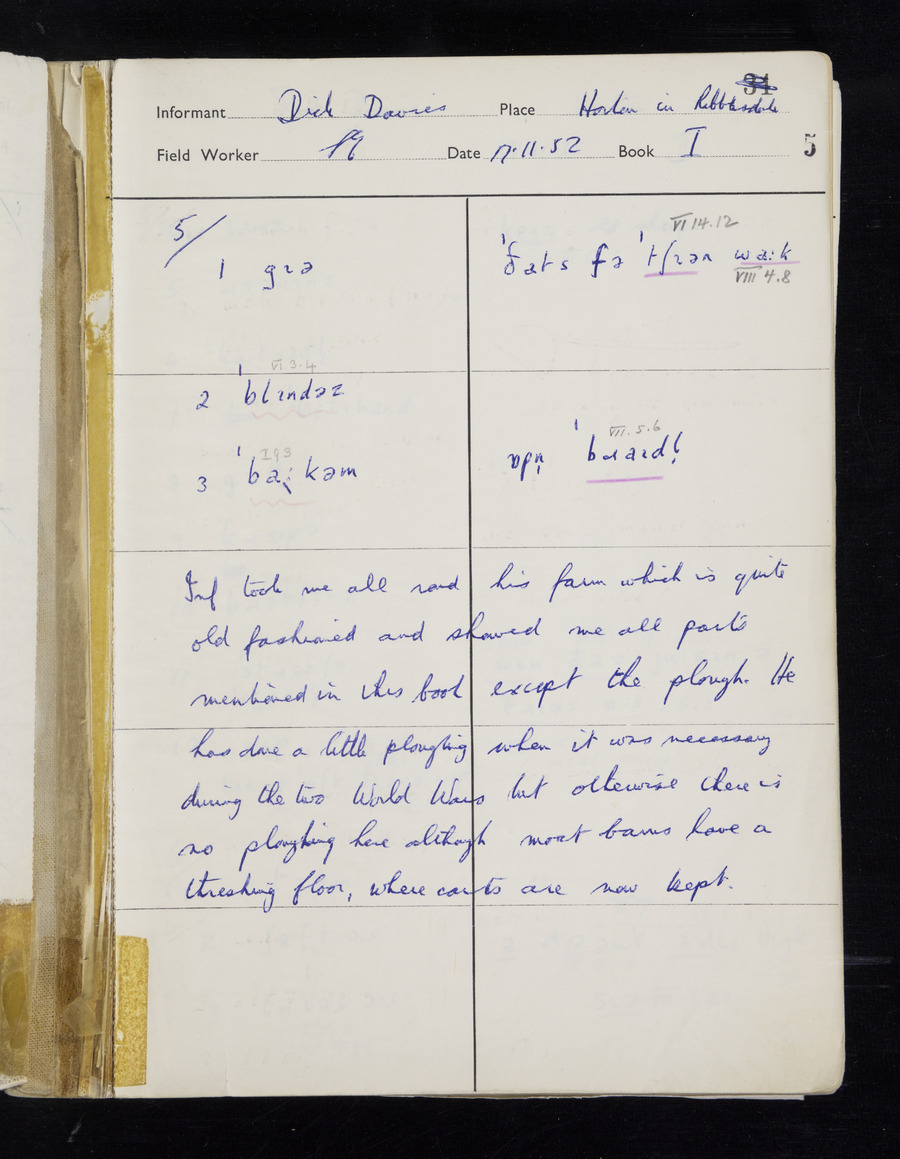 31
Informant Dick Davies Place Horton in Ribblesdale
Field Worker Date 17.11.52 Book I 5
5/
VI 14.12
1 gɪə ˈðats fə ˈtʃɪən wa:k
VIII 4.8
VI 3.4
2 ˈblɪndəz
I 9 3 VII.5.6
3 ˈba:kəm ɒpn̩ ˈbɹaɪdḷ
Inf took me all round his farm which is quite
old fashioned and showed me all parts
mentioned in this book except the plough. He
has done a little ploughing when it was necessary
during the two World Wars but otherwise there is
no ploughing here although most barns have a
threshing floor, where carts are now kept.